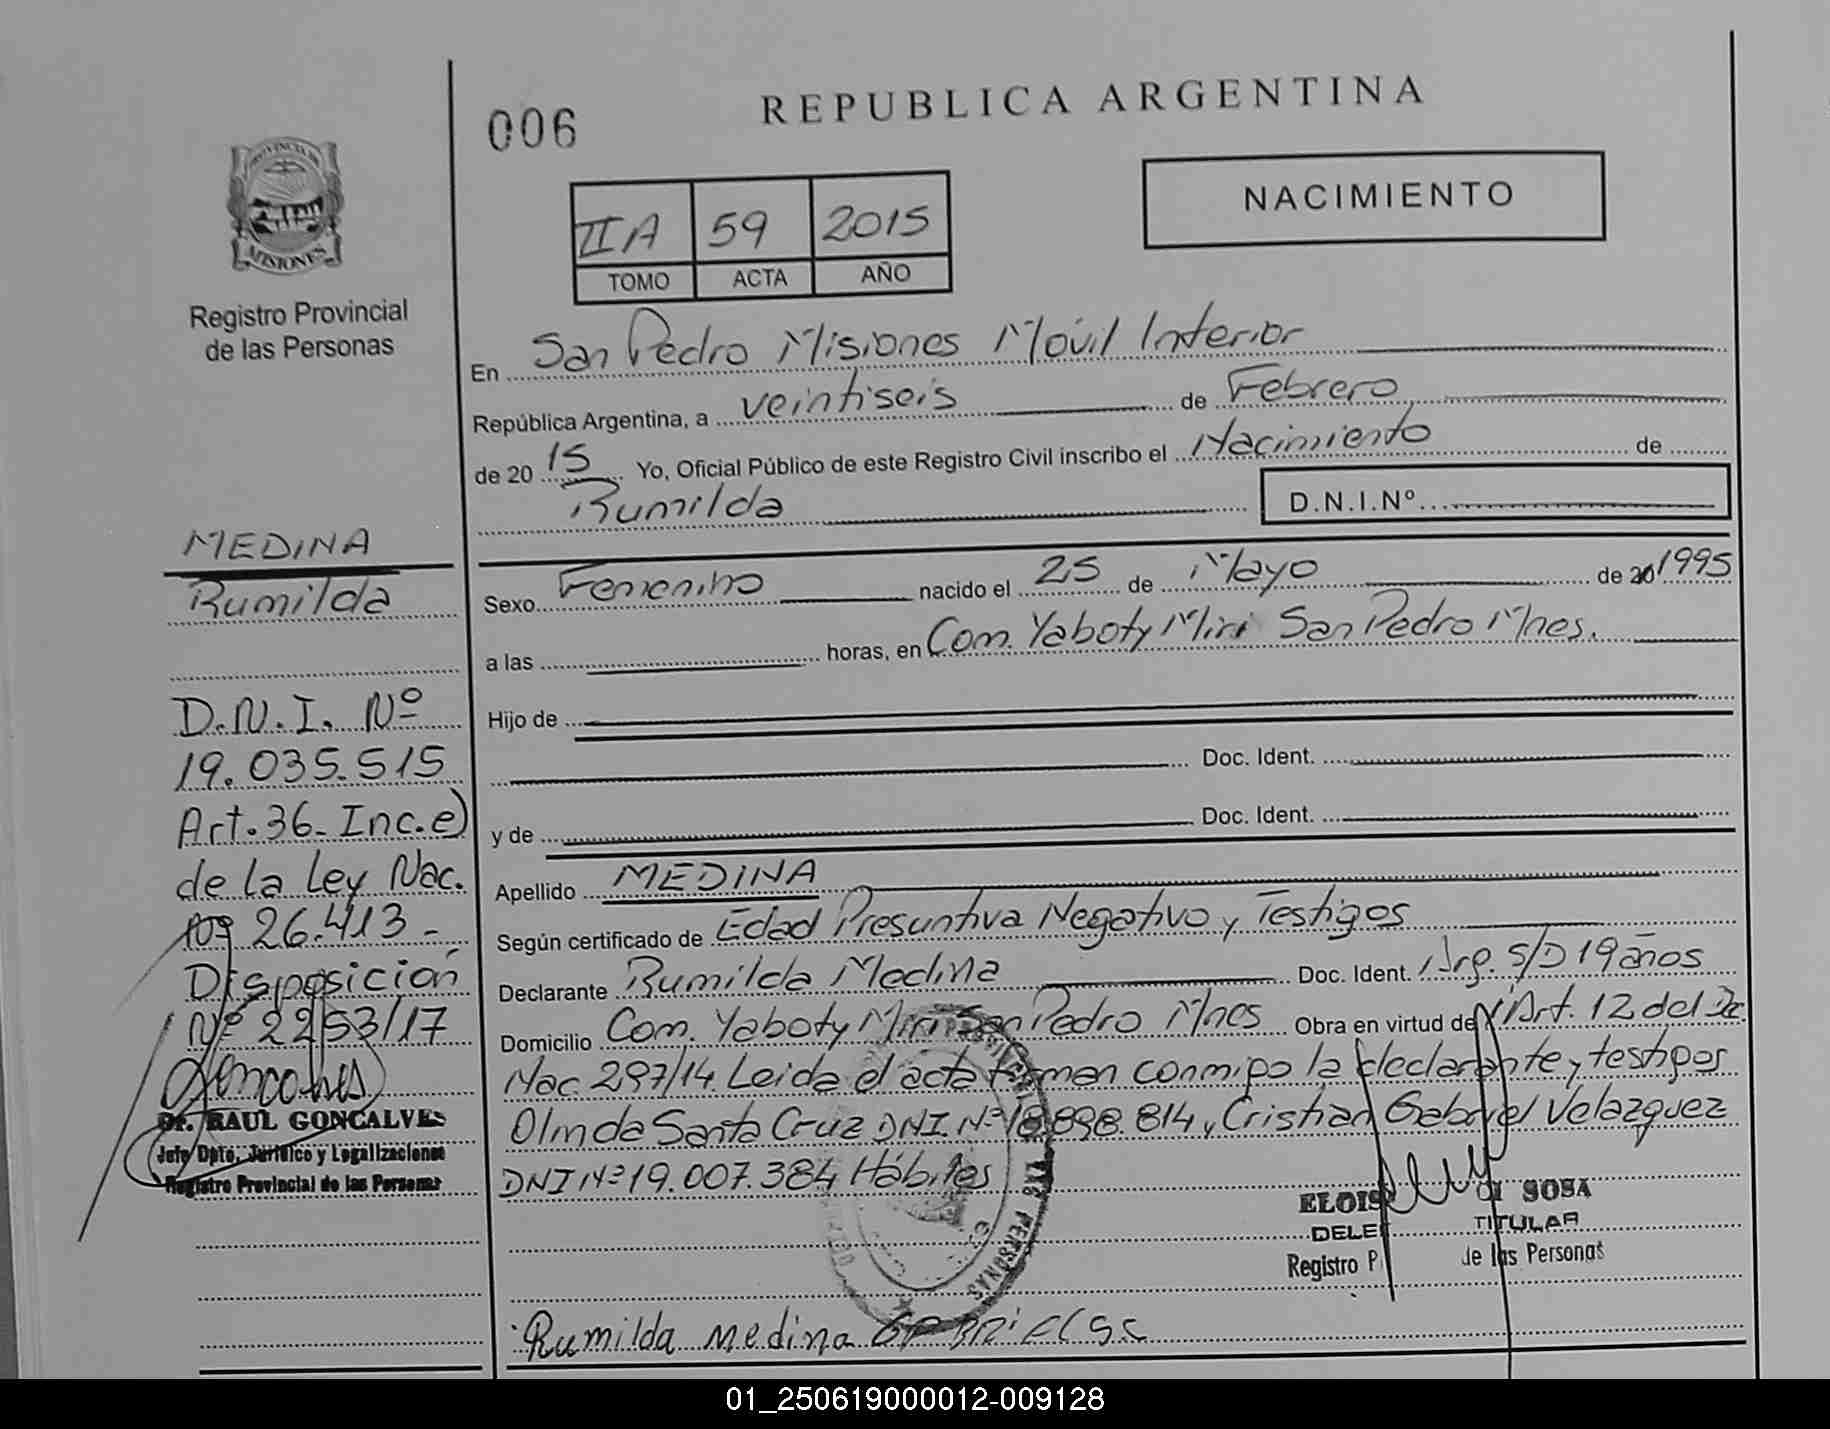 006
REPUBLICA ARGENTINA
NACIMIENTO
IIA 59 2015
TOMO ACTA AÑO
PROVINCIA DE
MISIONES
Registro Provincial
de las Personas
En San Pedro Misiones Móvil Interior
República Argentina, a veintiseis de Febrero
de 20 15 Yo, Oficial Público de este Registro Civil inscribo el Nacimiento de
Rumilda
D.N.I.Nº
MEDINA
Rumilda
D.N.I. Nº
19.035.515
Art.36- Inc.e)
de la Ley Nac.
nº 26.413-
Disposición
Nº 2253/17
Dr. RAUL GONCALVES
Jefe Dpto. Jurídico y Legalizaciones
Registro Provincial de las Personas
Sexo Femenino nacido el 25 de Mayo de 20 1995
a las horas, en Com. Yaboty Mini San Pedro Mnes.
Hijo de
Doc. Ident.
y de Doc. Ident.
Apellido MEDINA
Según certificado de Edad Presuntiva Negativo y Testigos
Declarante Rumilda Medina Doc. Ident. Arg. S/D 19 años
Domicilio Com. Yaboty Mini San Pedro Mnes Obra en virtud de Art. 12 del Dec.
Nac. 297/14. Leida el acta firman conmigo la declarante y testigos
Olinda Santa Cruz DNI.Nº 18.898.814 y Cristian Gabriel Velazquez
DNI Nº 19.007.384 Hábiles
ELOIS DI SOSA
DELE TITULAR
Registro P de las Personas
LAS PERSONAS
Rumilda medina GABRIEL S.C
01_250619000012-009128